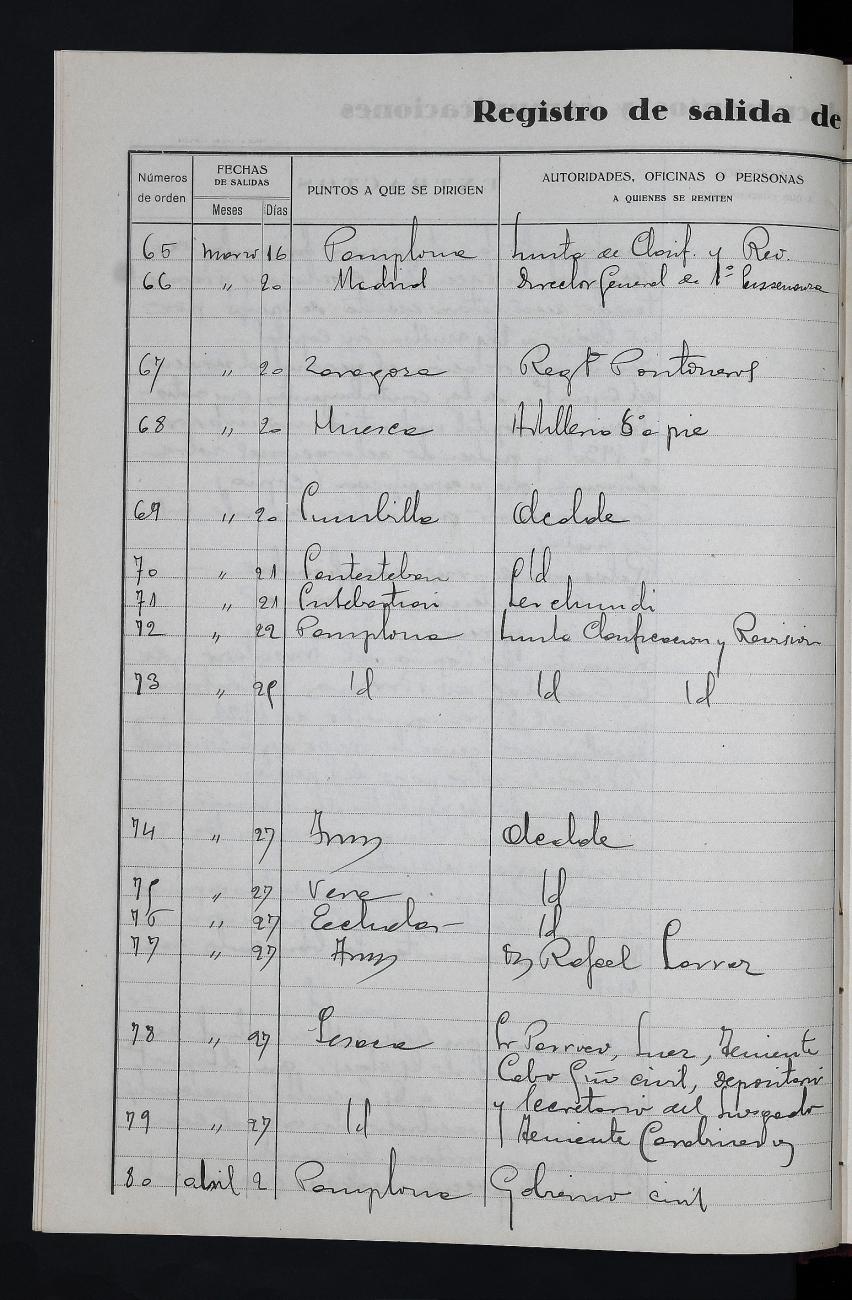 Registro de salida de
Números de orden
FECHAS DE SALIDAS
Meses Días
PUNTOS A QUE SE DIRIGEN
AUTORIDADES, OFICINAS O PERSONAS
A QUIENES SE REMITEN
65 marzo 16 Pamplona Junta de Clasif. y Rev.
66 " 20 Madrid Director General de 1ª Enseñanza
67 " 20 Zaragoza Regtº Pontoneros
68 " 20 Huesca Artilleria a pie
69 " 20 Sumbilla Alcalde
70 " 21 Santesteban Id
71 " 21 Lerchundi
72 " 22 Pamplona Junta Clasificacion y Revision
73 " 25 Id Id Id
74 " 27 Irun Alcalde
75 " 27 Vera Id
76 " 27 Echalar Id
77 " 27 Irun Dn Rafael
78 " 27 Lesaca Sr Parroco, Juez, Teniente
Cabo Gu civil, Depositario
y Secretario del Juzgado
79 " 27 Id Teniente Carabineros
80 abril 2 Pamplona Gobierno civil